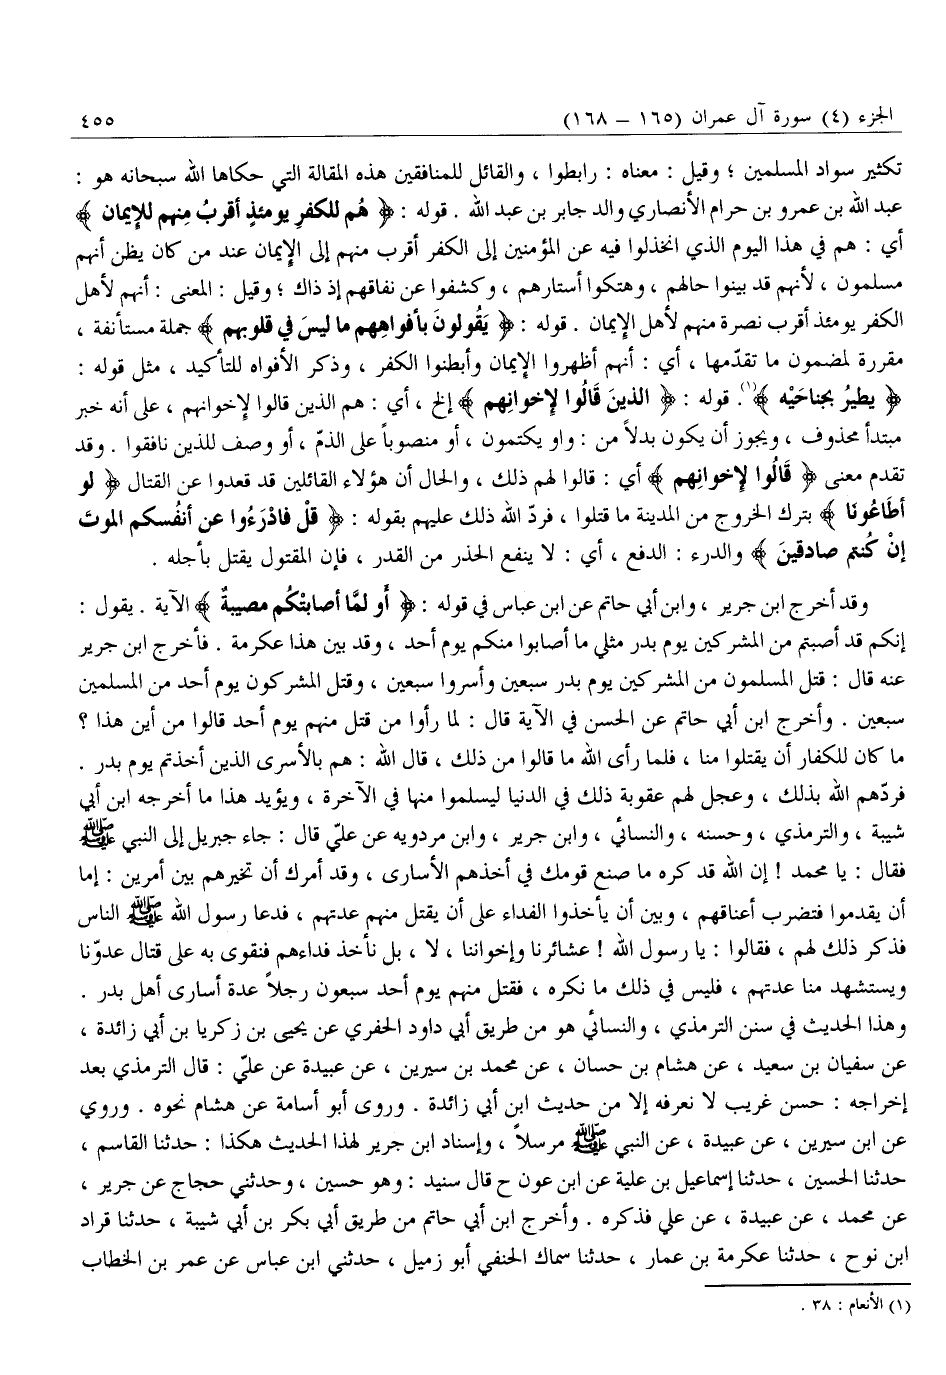 الجزء (٤) سورة آل عمران (١٦٥ – ١٦٨)
٤٥٥
تكثير سواد المسلمين ؛ وقيل : معناه : رابطوا ، والقائل للمنافقين هذه المقالة التي حكاها الله سبحانه هو :
عبد الله بن عمرو بن حرام الأنصاري والد جابر بن عبد الله . قوله : ﴿ هُم للكفرِ يومئذٍ أقربُ منهم للإِيمان ﴾
أي : هم في هذا اليوم الذي انخذلوا فيه عن المؤمنين إلى الكفر أقرب منهم إلى الإِيمان عند من كان يظن أنهم
مسلمون ، لأنهم قد بينوا حالهم ، وهتكوا أستارهم ، وكشفوا عن نفاقهم إذ ذاك ؛ وقيل : المعنى : أنهم لأهل
الكفر يومئذ أقرب نصرة منهم لأهل الإِيمان . قوله : ﴿ يَقُولونَ بأفواهِهم ما ليسَ في قلوبهم ﴾ جملة مستأنفة ،
مقررة لمضمون ما تقدّمها ، أي : أنهم أظهروا الإِيمان وأبطنوا الكفر ، وذكر الأفواه للتأكيد ، مثل قوله :
﴿ يطيرُ بجناحَيْه ﴾(١). قوله : ﴿ الذينَ قَالُوا لإخوانِهم ﴾ إلخ ، أي : هم الذين قالوا لإخوانهم ، على أنه خبر
مبتدأ محذوف ، ويجوز أن يكون بدلاً من : واو يكتمون ، أو منصوباً على الذمّ ، أو وصف للذين نافقوا . وقد
تقدم معنى ﴿ قَالُوا لإخوانِهم ﴾ أي : قالوا لهم ذلك ، والحال أن هؤلاء القائلين قد قعدوا عن القتال ﴿ لو
أطَاعُونَا ﴾ بترك الخروج من المدينة ما قتلوا ، فردّ الله ذلك عليهم بقوله : ﴿ قلْ فادْرَءُوا عن أنفُسكم الموتَ
إنْ كُنتم صادقينَ ﴾ والدرء : الدفع ، أي : لا ينفع الحذر من القدر ، فإن المقتول يقتل بأجله .
وقد أخرج ابن جرير ، وابن أبي حاتم عن ابن عباس في قوله : ﴿ أَو لمَّا أصابتْكُم مصيبةٌ ﴾ الآية . يقول :
إنكم قد أصبتم من المشركين يوم بدر مثلي ما أصابوا منكم يوم أحد ، وقد بين هذا عكرمة . فأخرج ابن جرير
عنه قال : قتل المسلمون من المشركين يوم بدر سبعين وأسروا سبعين ، وقتل المشركون يوم أحد من المسلمين
سبعين . وأخرج ابن أبي حاتم عن الحسن في الآية قال : لما رأوا من قتل منهم يوم أحد قالوا من أين هذا ؟
ما كان للكفار أن يقتلوا منا ، فلما رأى الله ما قالوا من ذلك ، قال الله : هم بالأسرى الذين أخذتم يوم بدر .
فردّهم الله بذلك ، وعجل لهم عقوبة ذلك في الدنيا ليسلموا منها في الآخرة ، ويؤيد هذا ما أخرجه ابن أبي
شيبة ، والترمذي ، وحسنه ، والنسائي ، وابن جرير ، وابن مردويه عن عليّ قال : جاء جبريل إلى النبي ﷺ
فقال : يا محمد ! إن الله قد كره ما صنع قومك في أخذهم الأسارى ، وقد أمرك أن تخيرهم بين أمرين : إما
أن يقدموا فتضرب أعناقهم ، وبين أن يأخذوا الفداء على أن يقتل منهم عدتهم ، فدعا رسول الله ﷺ الناس
فذكر ذلك لهم ، فقالوا : يا رسول الله ! عشائرنا وإخواننا ، لا ، بل نأخذ فداءهم فنقوى به على قتال عدوّنا
ويستشهد منا عدتهم ، فليس في ذلك ما نكره ، فقتل منهم يوم أحد سبعون رجلاً عدة أسارى أهل بدر .
وهذا الحديث في سنن الترمذي ، والنسائي هو من طريق أبي داود الحفري عن يحيى بن زكريا بن أبي زائدة ،
عن سفيان بن سعيد ، عن هشام بن حسان ، عن محمد بن سيرين ، عن عبيدة عن عليّ : قال الترمذي بعد
إخراجه : حسن غريب لا نعرفه إلا من حديث ابن أبي زائدة . وروى أبو أسامة عن هشام نحوه . وروي
عن ابن سيرين ، عن عبيدة ، عن النبي ﷺ مرسلاً ، وإسناد ابن جرير لهذا الحديث هكذا : حدثنا القاسم ،
حدثنا الحسين ، حدثنا إسماعيل بن علية عن ابن عون ح قال سنيد : وهو حسين ، وحدثني حجاج عن جرير ،
عن محمد ، عن عبيدة ، عن علي فذكره . وأخرج ابن أبي حاتم من طريق أبي بكر بن أبي شيبة ، حدثنا قراد
ابن نوح ، حدثنا عكرمة بن عمار ، حدثنا سماك الحنفي أبو زميل ، حدثني ابن عباس عن عمر بن الخطاب
(١) الأنعام : ٣٨ .